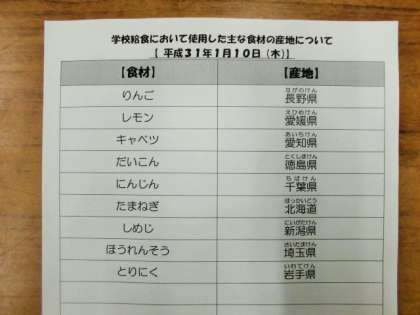 学校給食において使用した主な食材の産地について
【 平成31年1月10日（木）】
【食材】 【産地】
りんご 長野県 ながのけん
レモン 愛媛県 えひめけん
キャベツ 愛知県 あいちけん
だいこん 徳島県 とくしまけん
にんじん 千葉県 ちばけん
たまねぎ 北海道 ほっかいどう
しめじ 新潟県 にいがたけん
ほうれんそう 埼玉県 さいたまけん
とりにく 岩手県 いわてけん